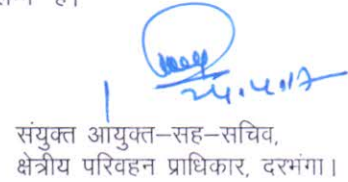 है।
24.4.17
संयुक्त आयुक्त–सह–सचिव,
क्षेत्रीय परिवहन प्राधिकार, दरभंगा।